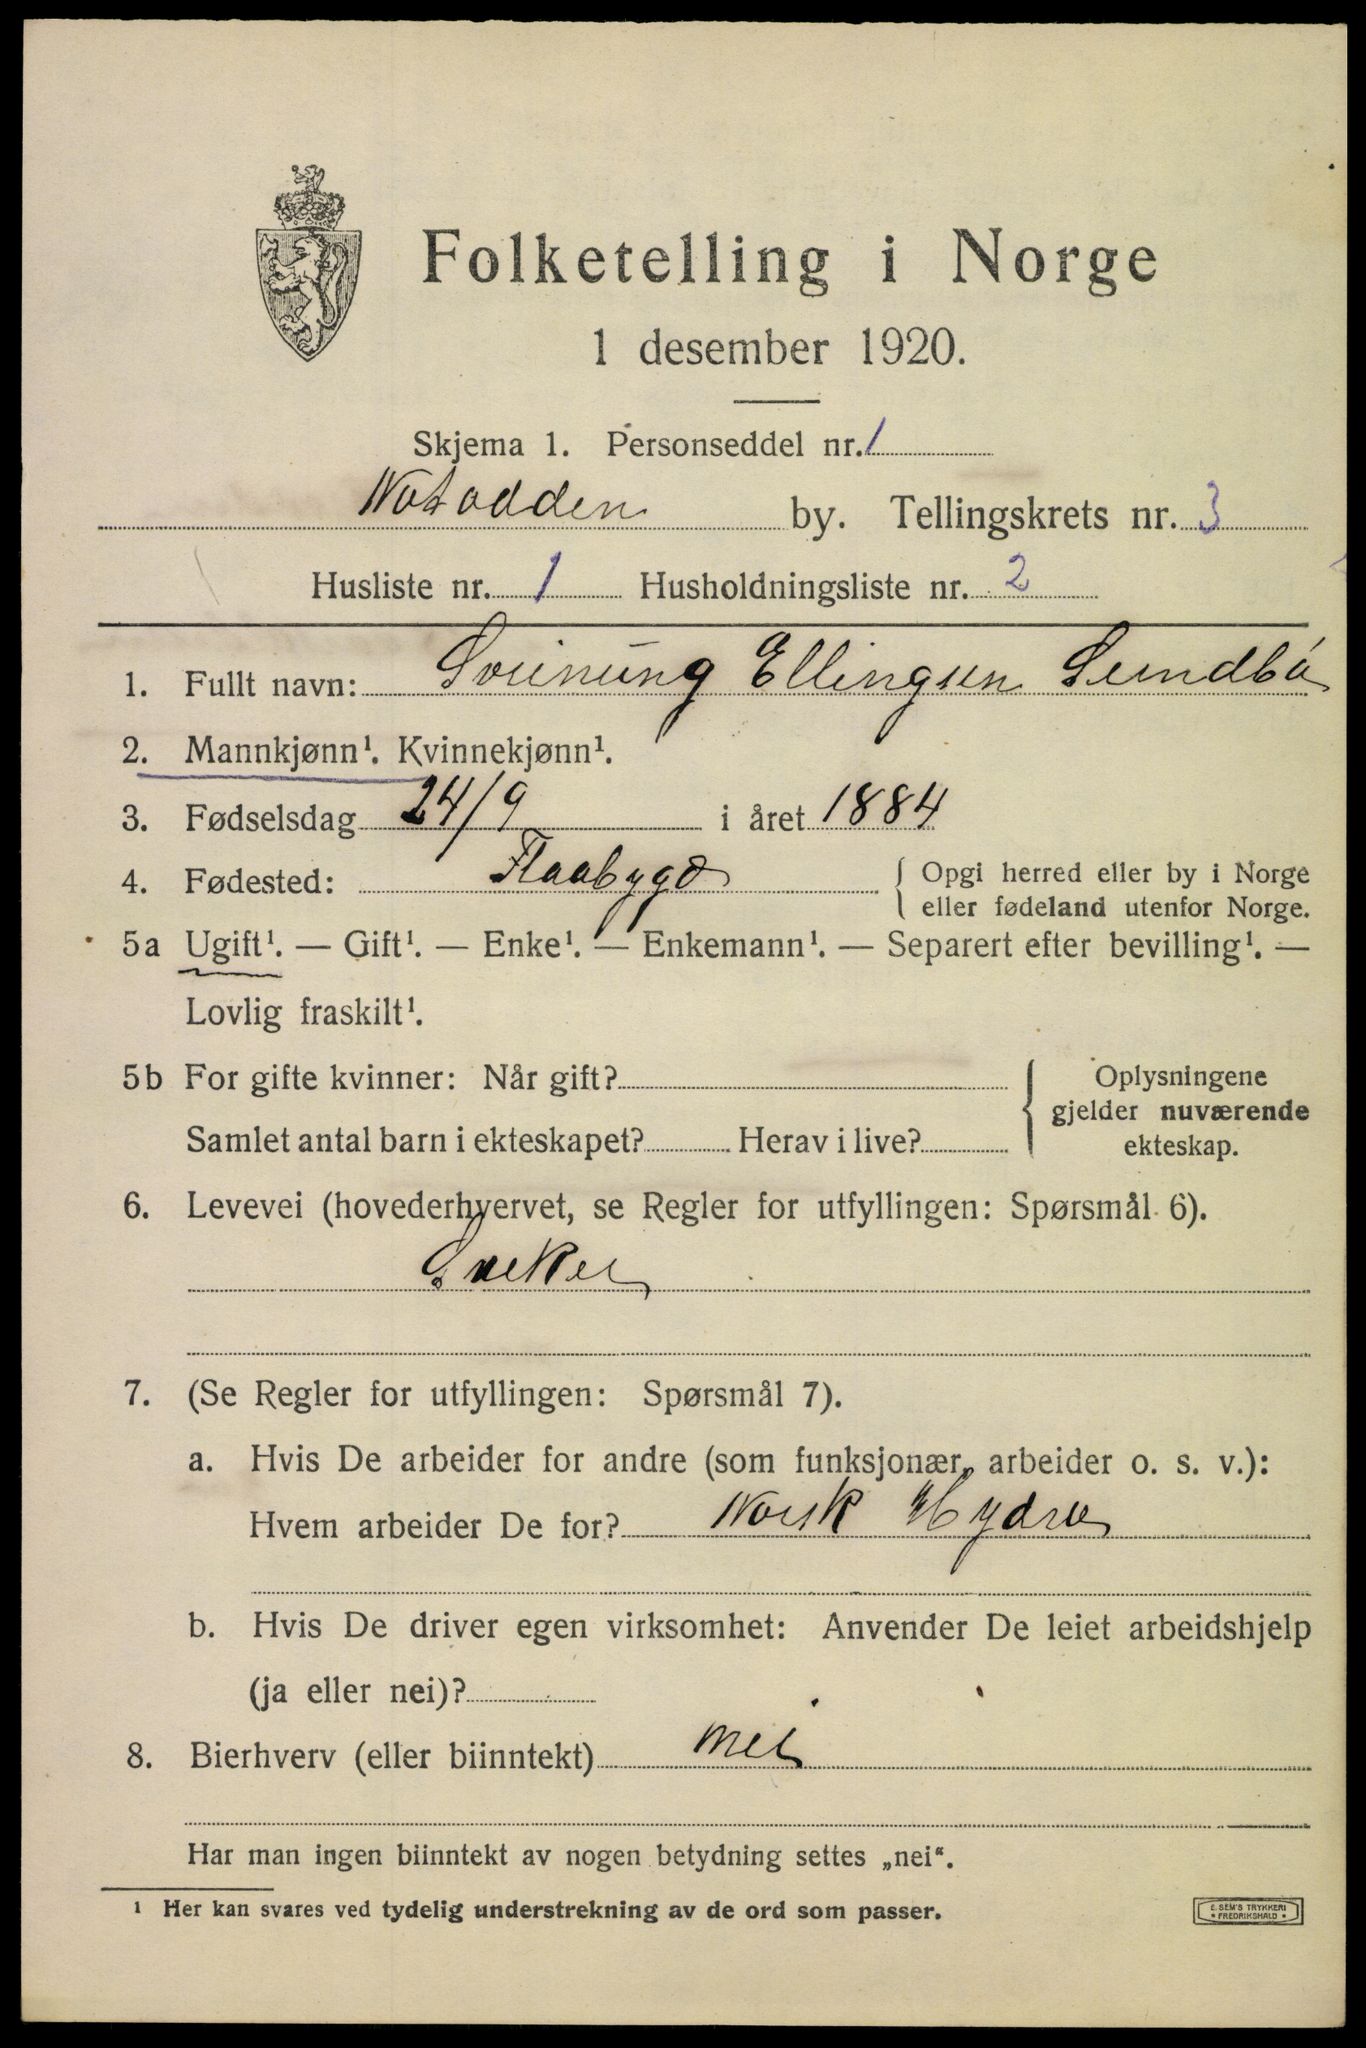 Folketelling i Norge
1 desember 1920.
Skjema 1. Personseddel nr. 1
Notodden by. Tellingskrets nr. 3
Husliste nr. 1 Husholdningsliste nr. 2
1. Fullt navn: Sveinung Ellingsen Sundbö
2. Mannkjønn¹. Kvinnekjønn¹.
3. Fødselsdag 24/9 i året 1884
4. Fødested: Flaabygd { Opgi herred eller by i Norge
eller fødeland utenfor Norge.
5a Ugift¹. — Gift¹. — Enke¹. — Enkemann¹. — Separert efter bevilling¹. —
Lovlig fraskilt¹.
5b For gifte kvinner: Når gift?
Samlet antal barn i ekteskapet? Herav i live?
{ Oplysningene
gjelder nuværende
ekteskap.
6. Levevei (hovederhvervet, se Regler for utfyllingen: Spørsmål 6).
7. (Se Regler for utfyllingen: Spørsmål 7).
a. Hvis De arbeider for andre (som funksjonær, arbeider o. s. v.):
Hvem arbeider De for? Norsk Hydro
b. Hvis De driver egen virksomhet: Anvender De leiet arbeidshjelp
(ja eller nei)?
8. Bierhverv (eller biinntekt) nei
Har man ingen biinntekt av nogen betydning settes „nei“.
¹ Her kan svares ved tydelig understrekning av de ord som passer.
E. SEM'S TRYKKERI
* FREDRIKSHALD *